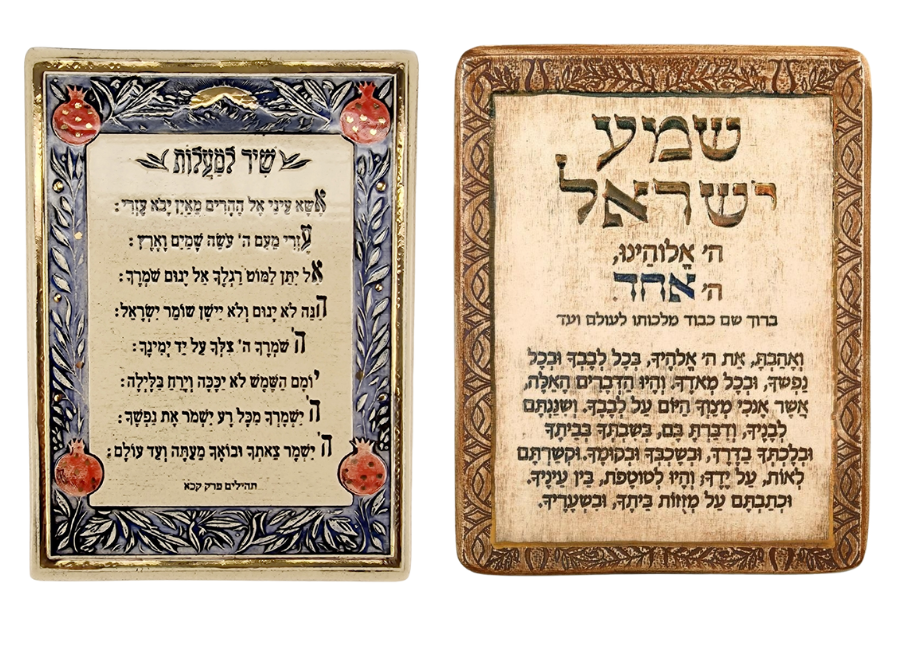 שִׁיר לַמַּעֲלוֹת
אֶשָּׂא עֵינַי אֶל הֶהָרִים מֵאַיִן יָבֹא עֶזְרִי:
עֶזְרִי מֵעִם ה' עֹשֵׂה שָׁמַיִם וָאָרֶץ:
אַל יִתֵּן לַמּוֹט רַגְלֶךָ אַל יָנוּם שֹׁמְרֶךָ:
הִנֵּה לֹא יָנוּם וְלֹא יִישָׁן שׁוֹמֵר יִשְׂרָאֵל:
ה' שֹׁמְרֶךָ ה' צִלְּךָ עַל יַד יְמִינֶךָ:
יוֹמָם הַשֶּׁמֶשׁ לֹא יַכֶּכָּה וְיָרֵחַ בַּלָּיְלָה:
ה' יִשְׁמָרְךָ מִכָּל רָע יִשְׁמֹר אֶת נַפְשֶׁךָ:
ה' יִשְׁמָר צֵאתְךָ וּבוֹאֶךָ מֵעַתָּה וְעַד עוֹלָם:
תהילים פרק קכא
שמע
ישראל
ה' אֱלוֹהֵינוּ,
ה' אֶחָד.
ברוך שם כבוד מלכותו לעולם ועד
וְאָהַבְתָּ, אֵת ה' אֱלֹהֶיךָ, בְּכָל לְבָבְךָ וּבְכָל
נַפְשְׁךָ, וּבְכָל מְאֹדֶךָ. וְהָיוּ הַדְּבָרִים הָאֵלֶּה,
אֲשֶׁר אָנֹכִי מְצַוְּךָ הַיּוֹם עַל לְבָבֶךָ. וְשִׁנַּנְתָּם
לְבָנֶיךָ, וְדִבַּרְתָּ בָּם, בְּשִׁבְתְּךָ בְּבֵיתֶךָ
וּבְלֶכְתְּךָ בַדֶּרֶךְ, וּבְשָׁכְבְּךָ וּבְקוּמֶךָ. וּקְשַׁרְתָּם
לְאוֹת, עַל יָדֶךָ; וְהָיוּ לְטוֹטָפֹת, בֵּין עֵינֶיךָ.
וּכְתַבְתָּם עַל מְזֻזוֹת בֵּיתֶךָ, וּבִשְׁעָרֶיךָ.